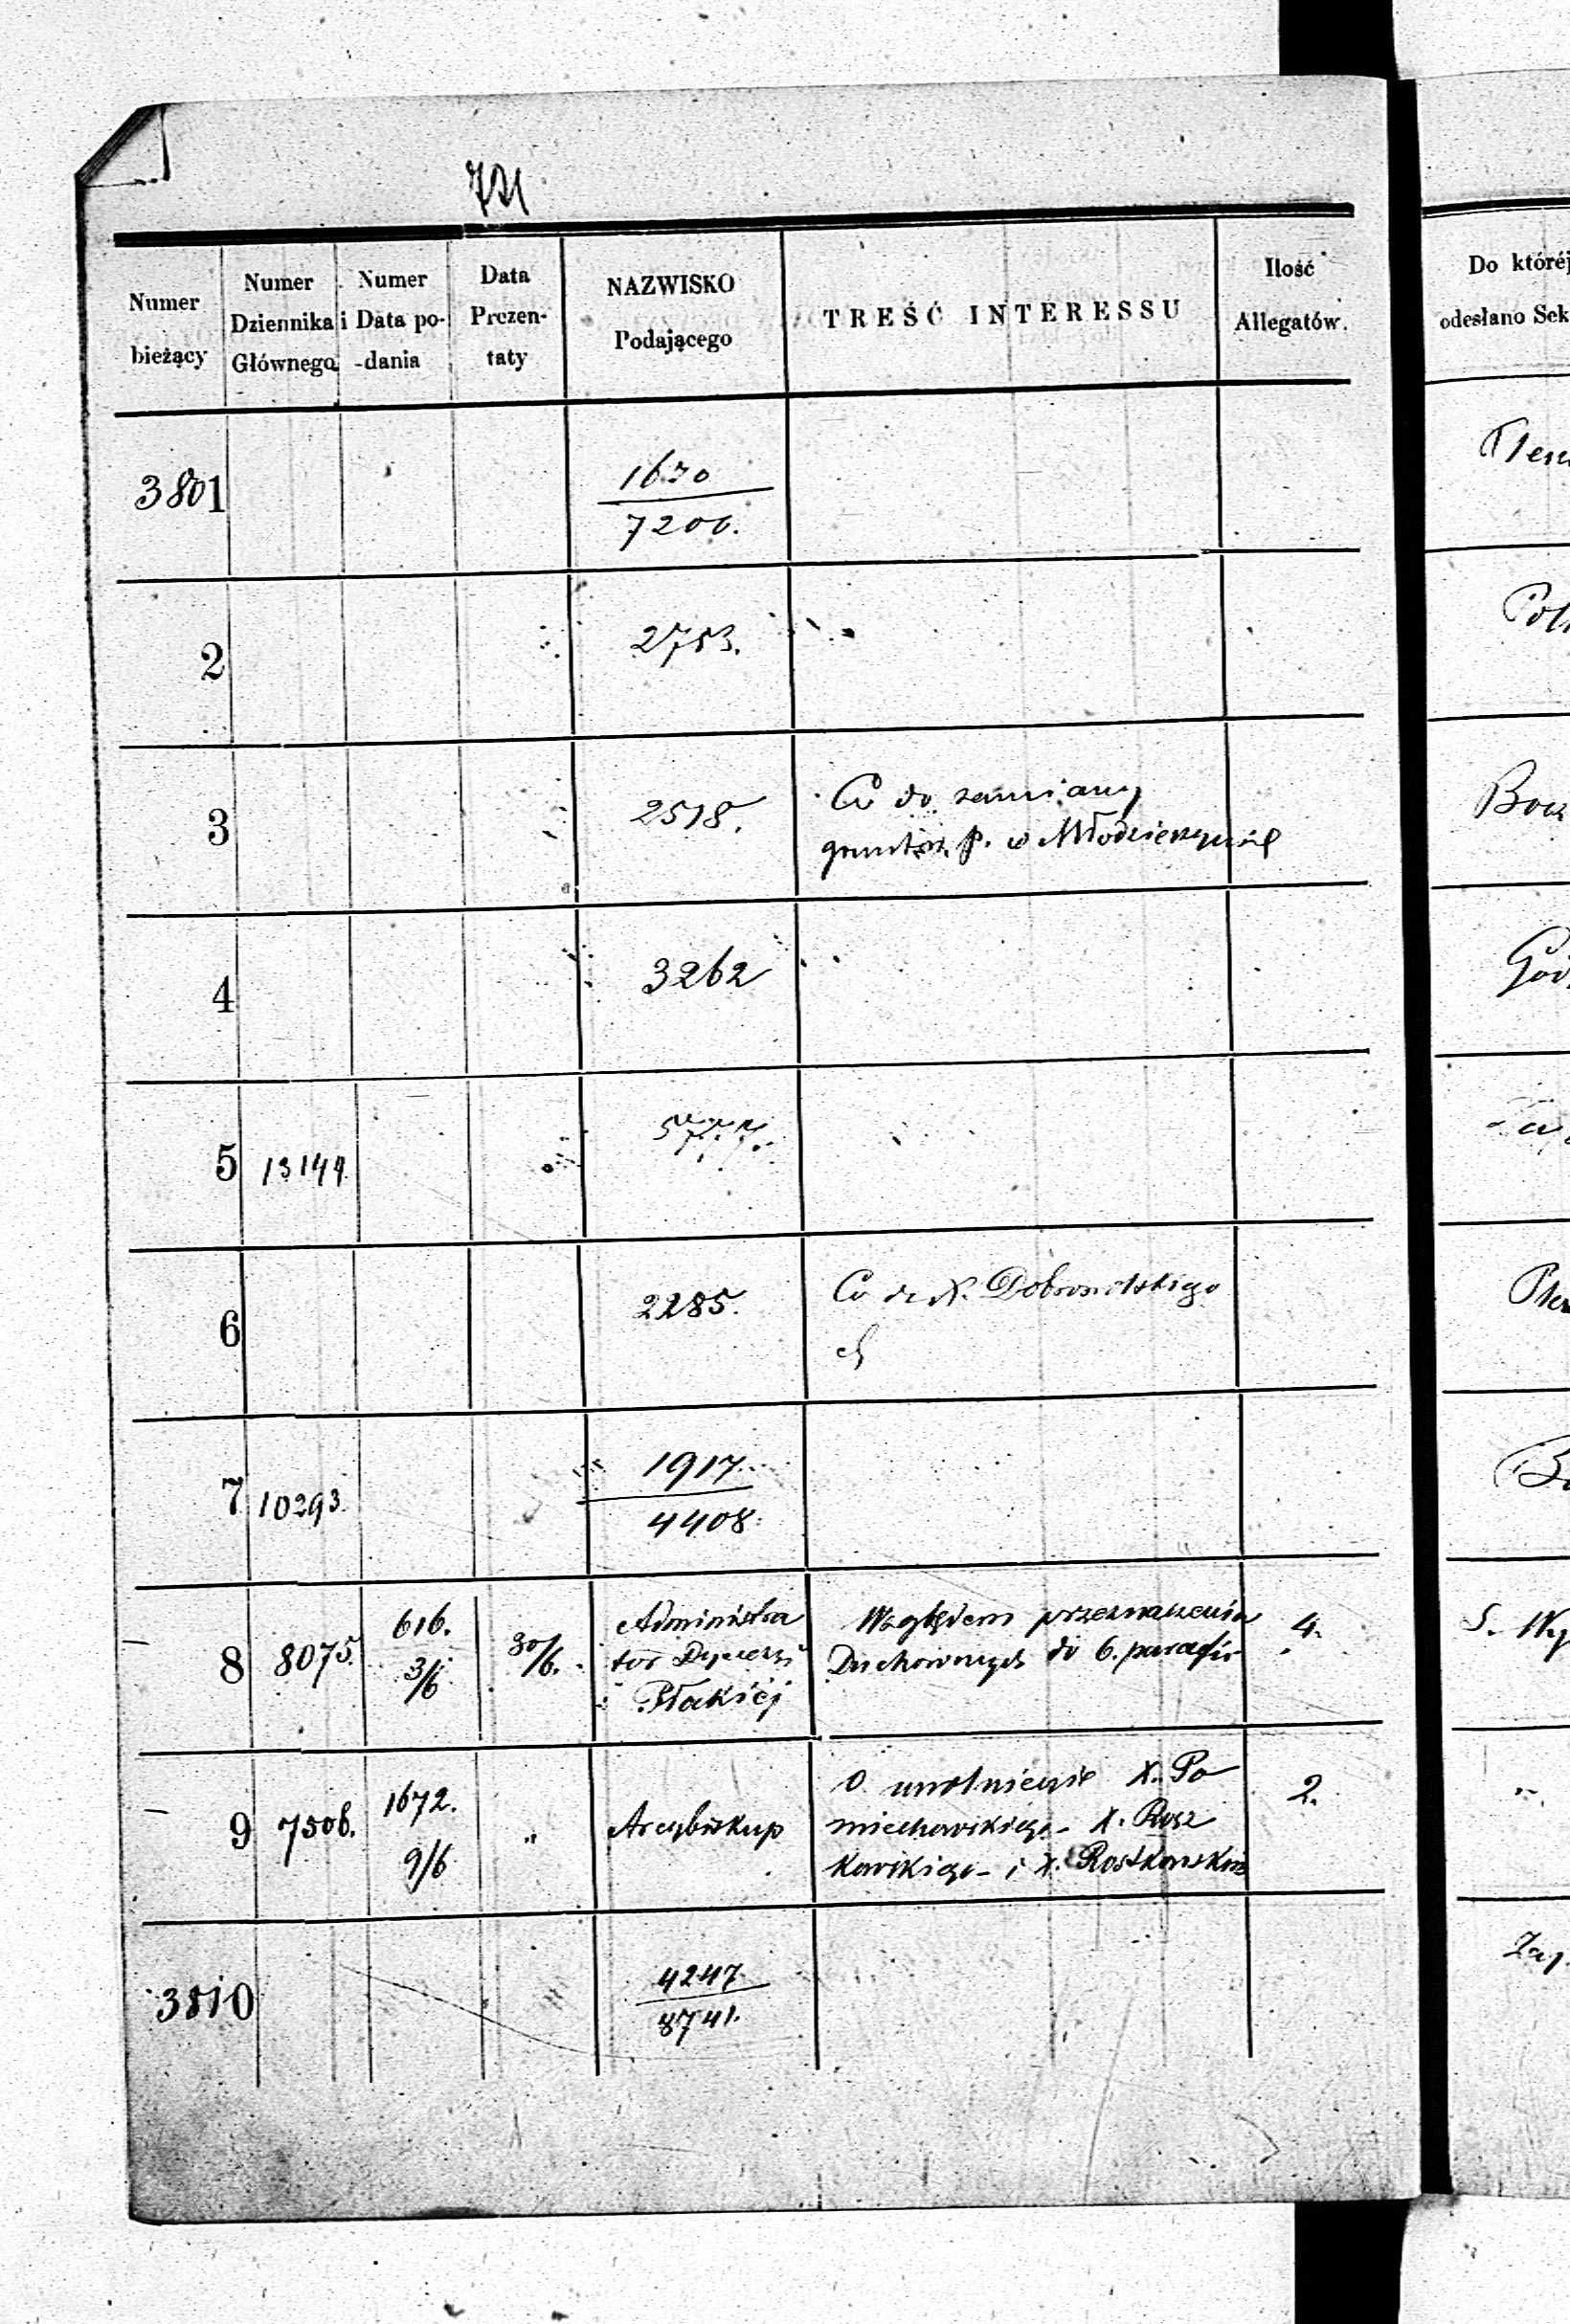 Numer bieżący
Numer Dziennika Głównego
Numer i Data po-dania
Data Prezen-taty
NAZWISKO Podającego
TREŚĆ INTERESSU
Ilość Allegatów.
Do któréj
odesłano Sek
3801
1670
7206.
2
2753.
3
2518.
Co do zamiany
gruntów p. w
4
3262
5 13149
577
6
2285.
Co do X.
7 10293.
1917.
4408.
8 8075. 616. 3/6 30/6.
Administra
tor Dyecezyi
Płockiéj
Względem przeznaczenia
Duchownych do 6. parafii
4.
9 7506. 1672. 9/6 "
Arcybiskup
O uwolnienie X. Po
miechowskiego X. Rusz
kowskiego i X. Rostkowskie
2.
3810
4247.
8741.